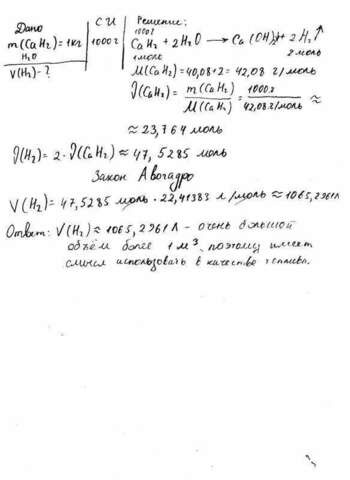 Дано
m(CaH₂)=1кг
H₂O
V(H₂)-?
СИ
1000г
Решение:
1000г
CaH₂ + 2H₂O → Ca(OH)₂ + 2H₂↑
1 моль 2 моль
M(CaH₂)=40,08+2=42,08 г/моль
ν(CaH₂)= m(CaH₂)/M(CaH₂) = 1000г/42,08 г/моль ≈
≈ 23,764 моль
ν(H₂)= 2·ν(CaH₂) ≈ 47,5285 моль
Закон Авогадро
V(H₂)= 47,5285 моль · 22,41383 л/моль ≈ 1065,2961л
Ответ: V(H₂)≈ 1065,2961л - очень большой
объём более 1 м³, поэтому имеет
смысл использовать в качестве топлива.